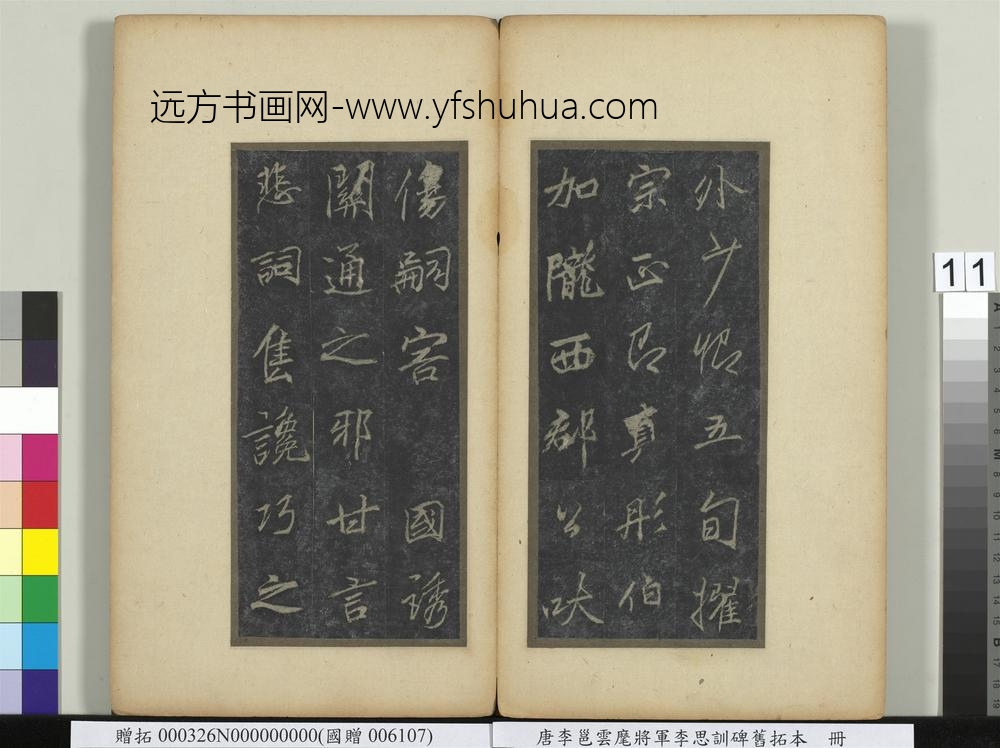 远方书画网-www.yfshuhua.com
外少恨五旬擢
宗正即真彤伯
加隴西郡公吠
傷嗣害國誘
關通之邪甘言
悲詞售讒巧之
11
贈拓 000326N000000000(國贈 006107)
唐李邕雲麾將軍李思訓碑舊拓本 冊